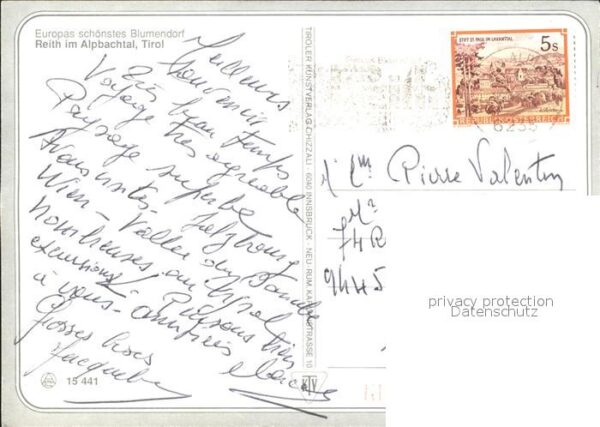 Europas schönstes Blumendorf
Reith im Alpbachtal, Tirol
Meilleurs
Souvenirs
Très beau temps
Voyage très agréable
Paysage superbe
Avons visité Salzbourg
Wien - Vallée du Danube
nombreuses au Tyrol
excursions. Pensons bien
à vous. amitiés
Grosses bises
Jacqueline
15 441
TIROLER KUNSTVERLAG CHIZZALI · 6040 INNSBRUCK - NEU-RUM, KAPLANSTRASSE 10
KTV
STIFT ST. PAUL IM LAVANTTAL
5s
REPUBLIK ÖSTERREICH
6235
Pierre Valentin
74 R
9445
privacy protection
Datenschutz